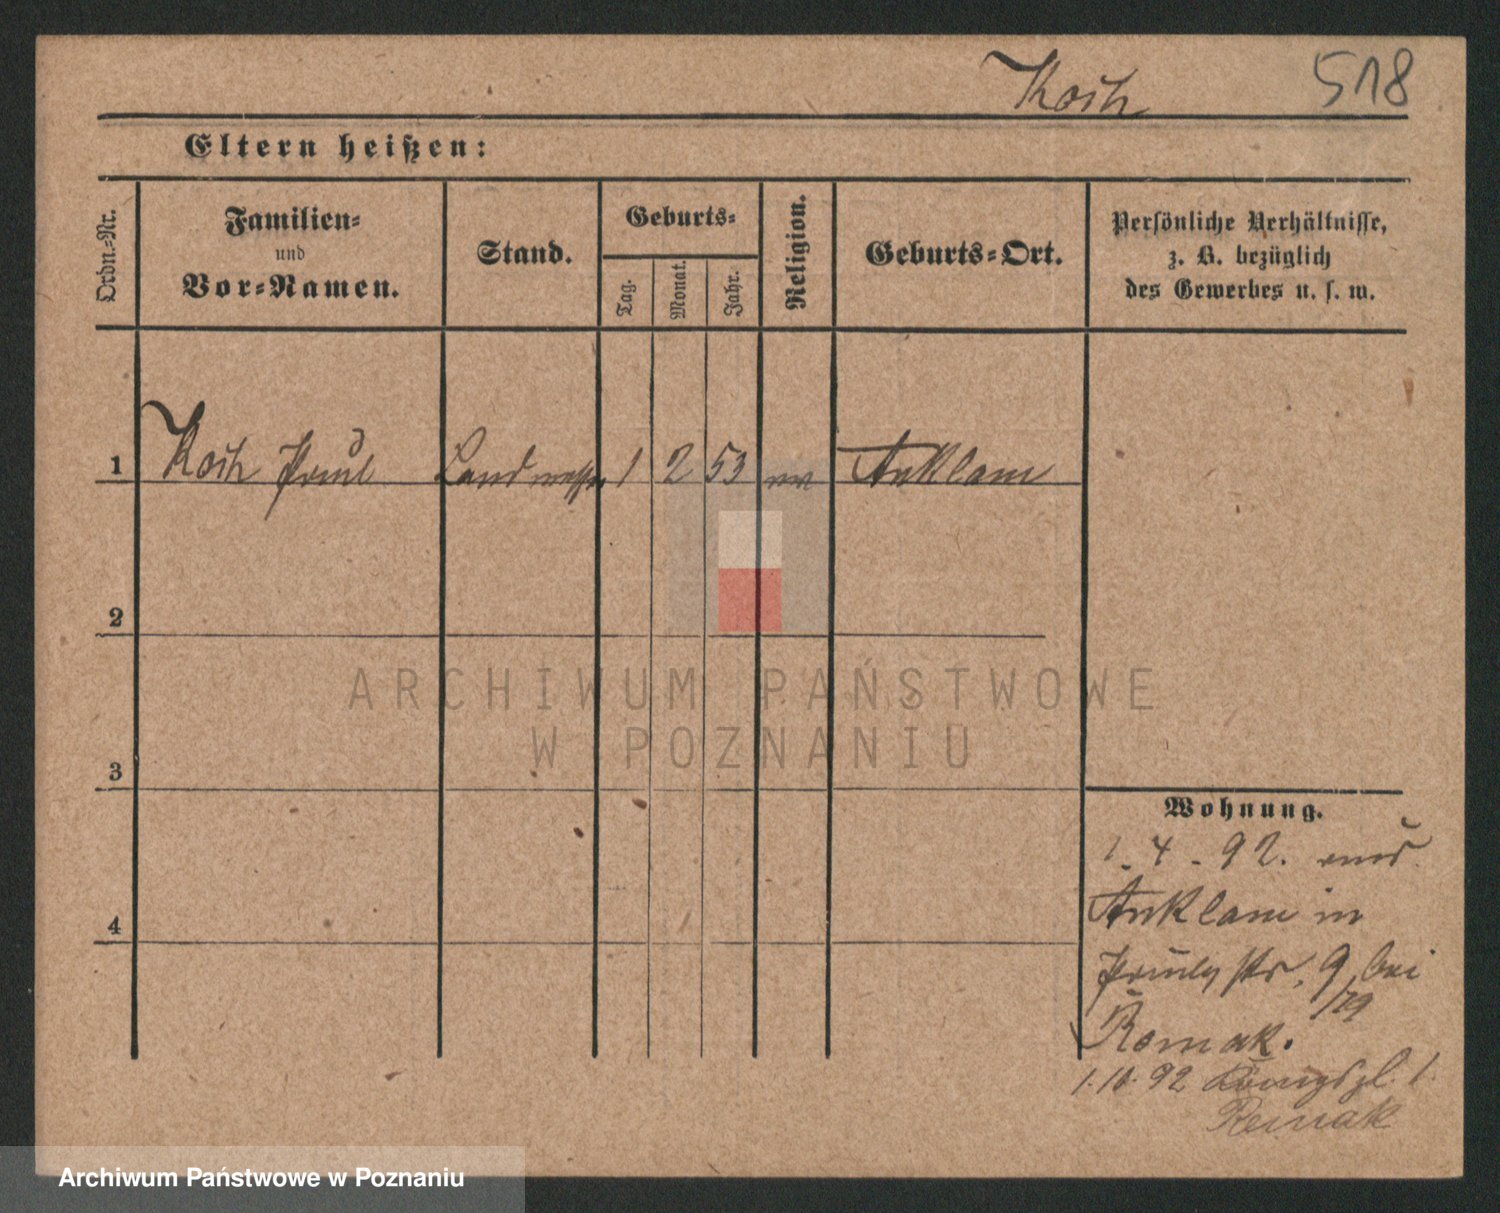 Koch 518
Eltern heißen:
Ordn.-Nr.
Familien-
und
Vor-Namen.
Stand.
Geburts-
Tag.
Monat.
Jahr.
Religion.
Geburts-Ort.
Persönliche Verhältnisse,
z. B. bezüglich
des Gewerbes u. s. w.
1 Koch Paul 1 2 53 ev Anklam
2
3
4
Wohnung.
1. 4. 92. aus
Anklam in
Paulystr. 9 bei
Remak.
1.10.92 Königspl. 1.
Remak
ARCHIWUM PAŃSTWOWE
W POZNANIU
Archiwum Państwowe w Poznaniu